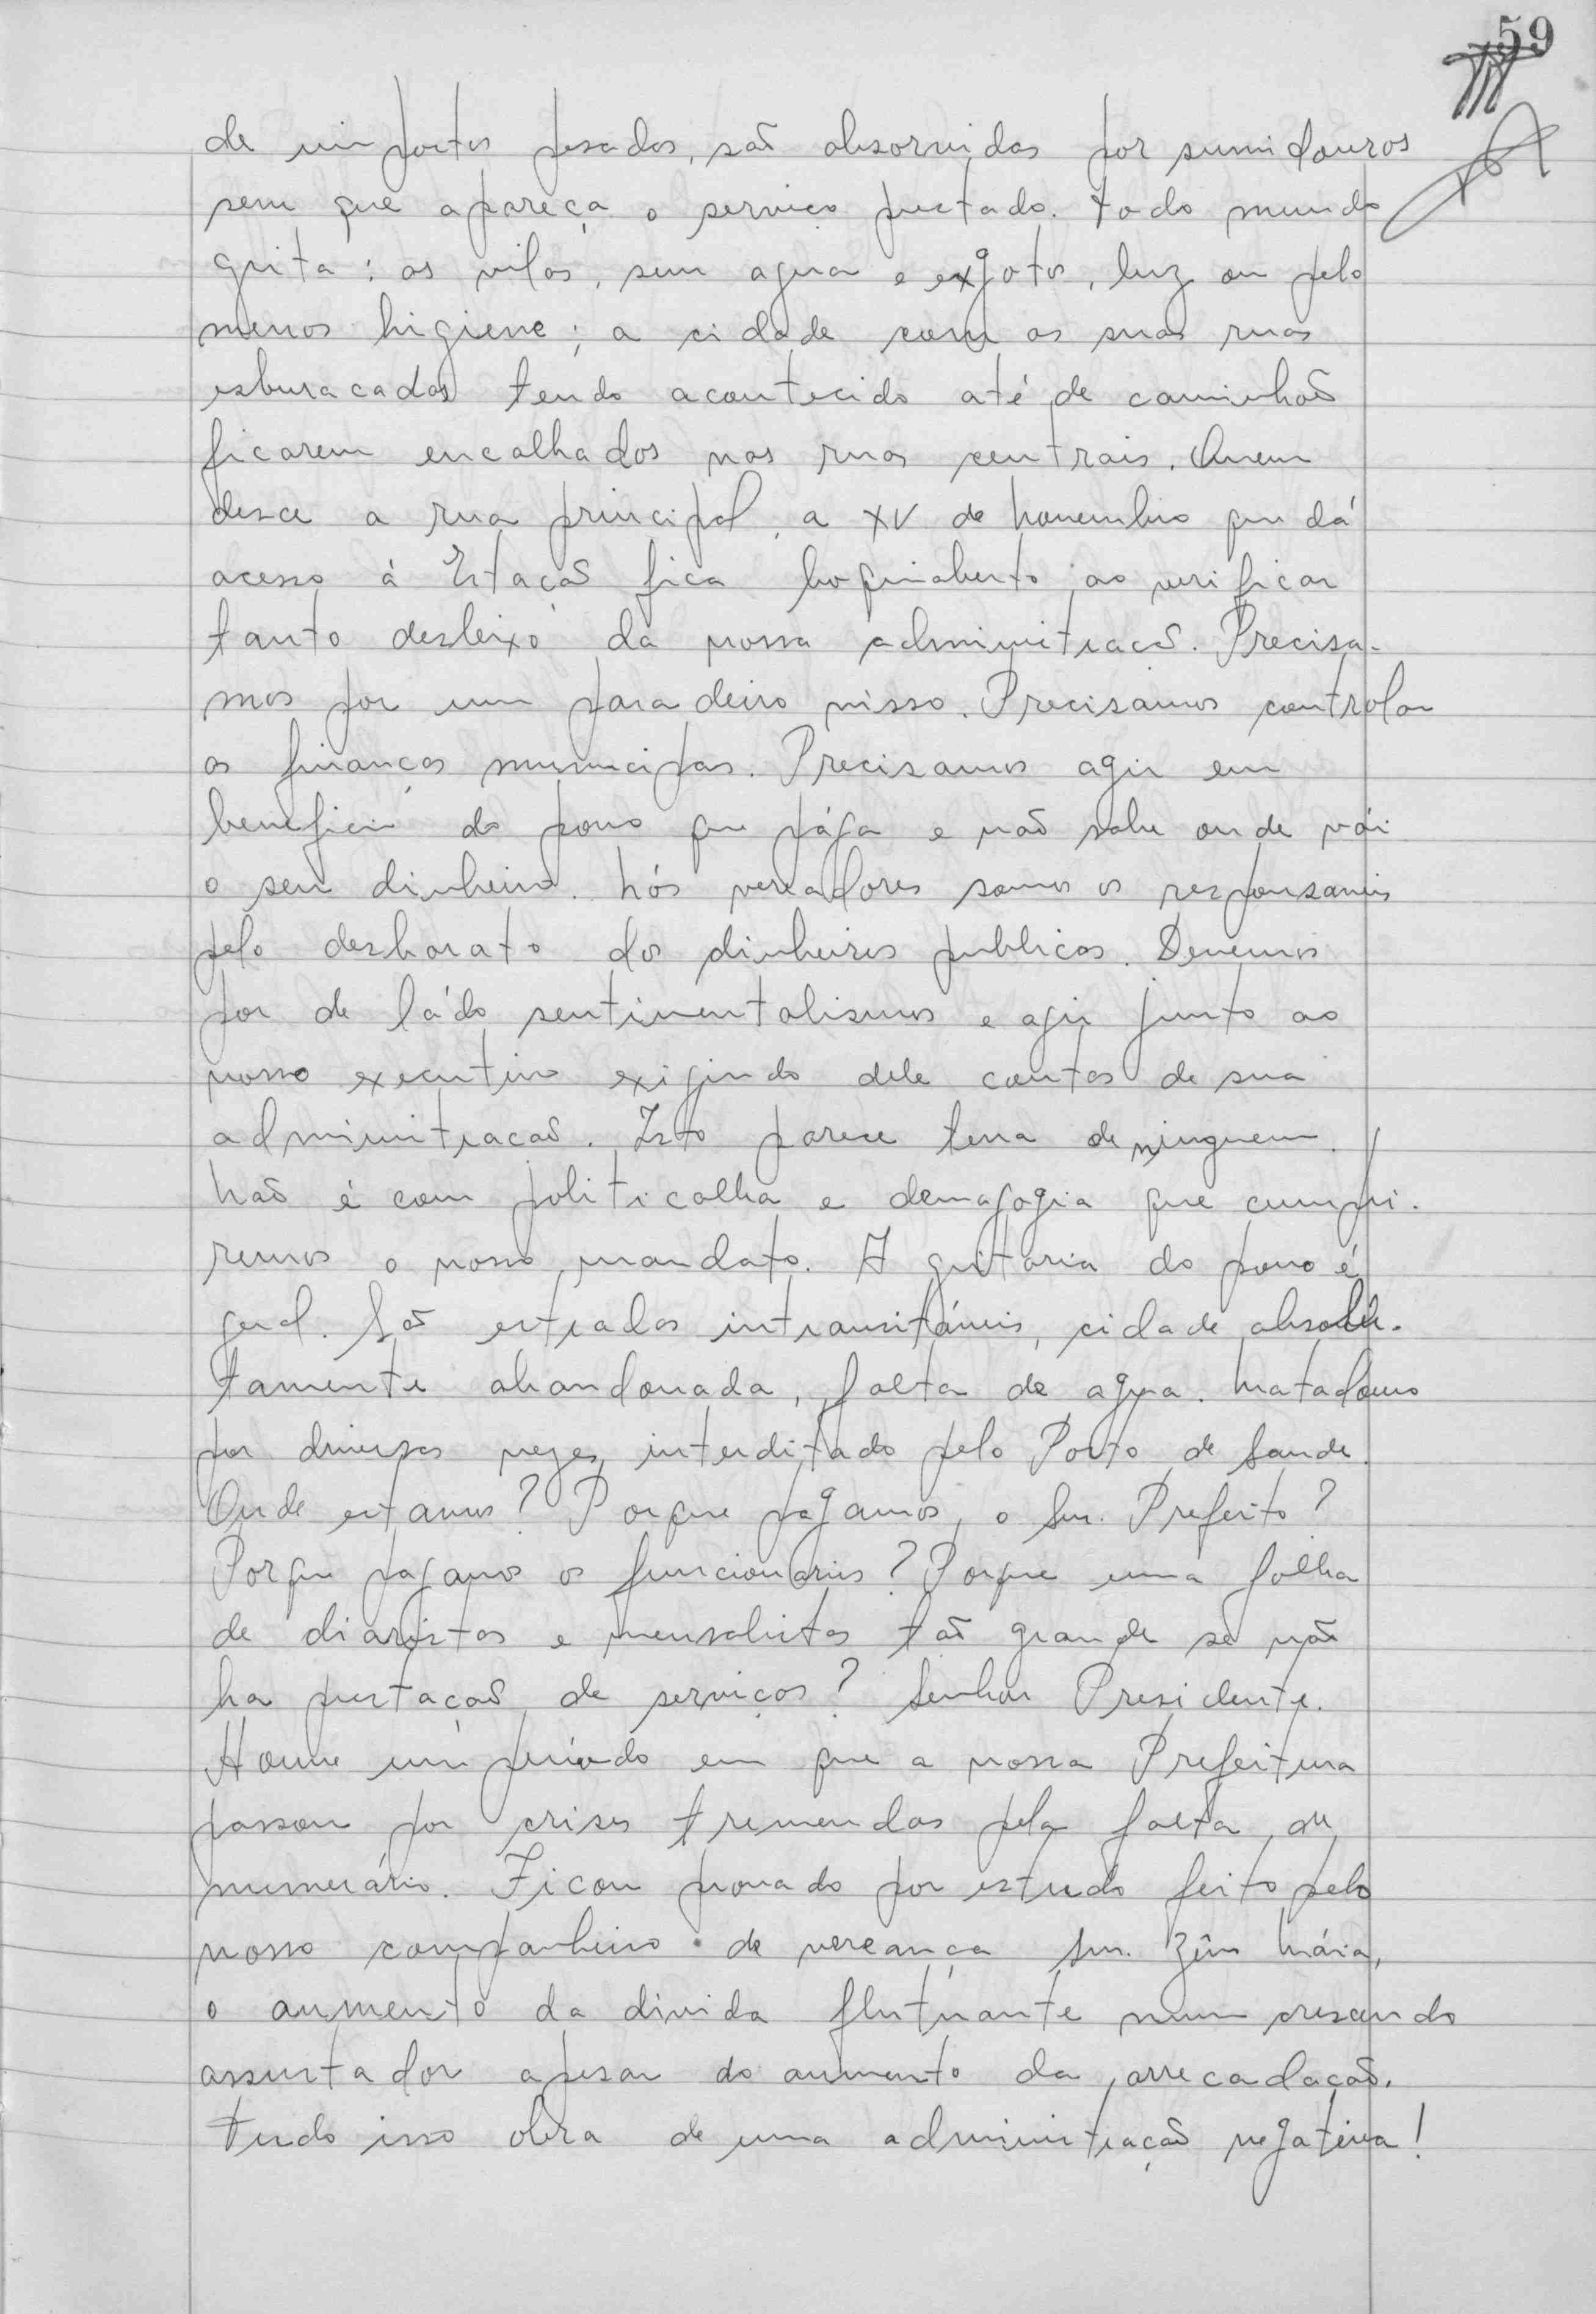 59
de impostos pesados, são absorvidos por sumidouros
sem que apareça o serviço prestado. Todo mundo
grita: as vilas, sem agua e exgotos, luz ou pelo
menos higiene; a cidade com as suas ruas
esburacadas tendo acontecido até de caminhões
ficarem encalhados nas ruas centrais. Quem
desce a rua principal, a XV de Novembro que dá
acesso á Estação fica boquiaberto ao verificar
tanto desleixo da nossa administração. Precisa-
mos por um paradeiro nisso. Precisamos controlar
as finanças municipas. Precisamos agir em
beneficio do povo que pága e não sabe onde vái
o seu dinheiro. Nós vereadores somos os responsaveis
pelo desbarato dos dinheiros publicos. Devemos
por de ládo sentimentalismos e agir junto ao
nosso executivo exigindo dele contas de sua
administracão. Isto parece terra de ninguem.
Não é com politicalha e demagogia que cumpri-
remos o nosso mandato. A gritaria do povo é
geral. São estradas intransitáveis, cidade absolu-
tamente abandonada, falta de agua. Matadouro
por diversas vezes interditado pelo Posto de Saude.
Onde estamos? Porque pagamos, o Snr. Prefeito?
Porque pagamos os funcionarios? Porque uma folha
de diaristas e mensalistas tão grande se não
ha prestação de serviços? Senhor Presidente.
Houve um periodo em que a nossa Prefeitura
passou por crises tremendas pela falta de
numerário. Ficou provado por estudo feito pelo
nosso companheiro de vereança Snr. Mária,
o aumento da divida flutuante num crescendo
assustador apesar do aumento da arrecadação.
Tudo isso obra de uma administração negativa!